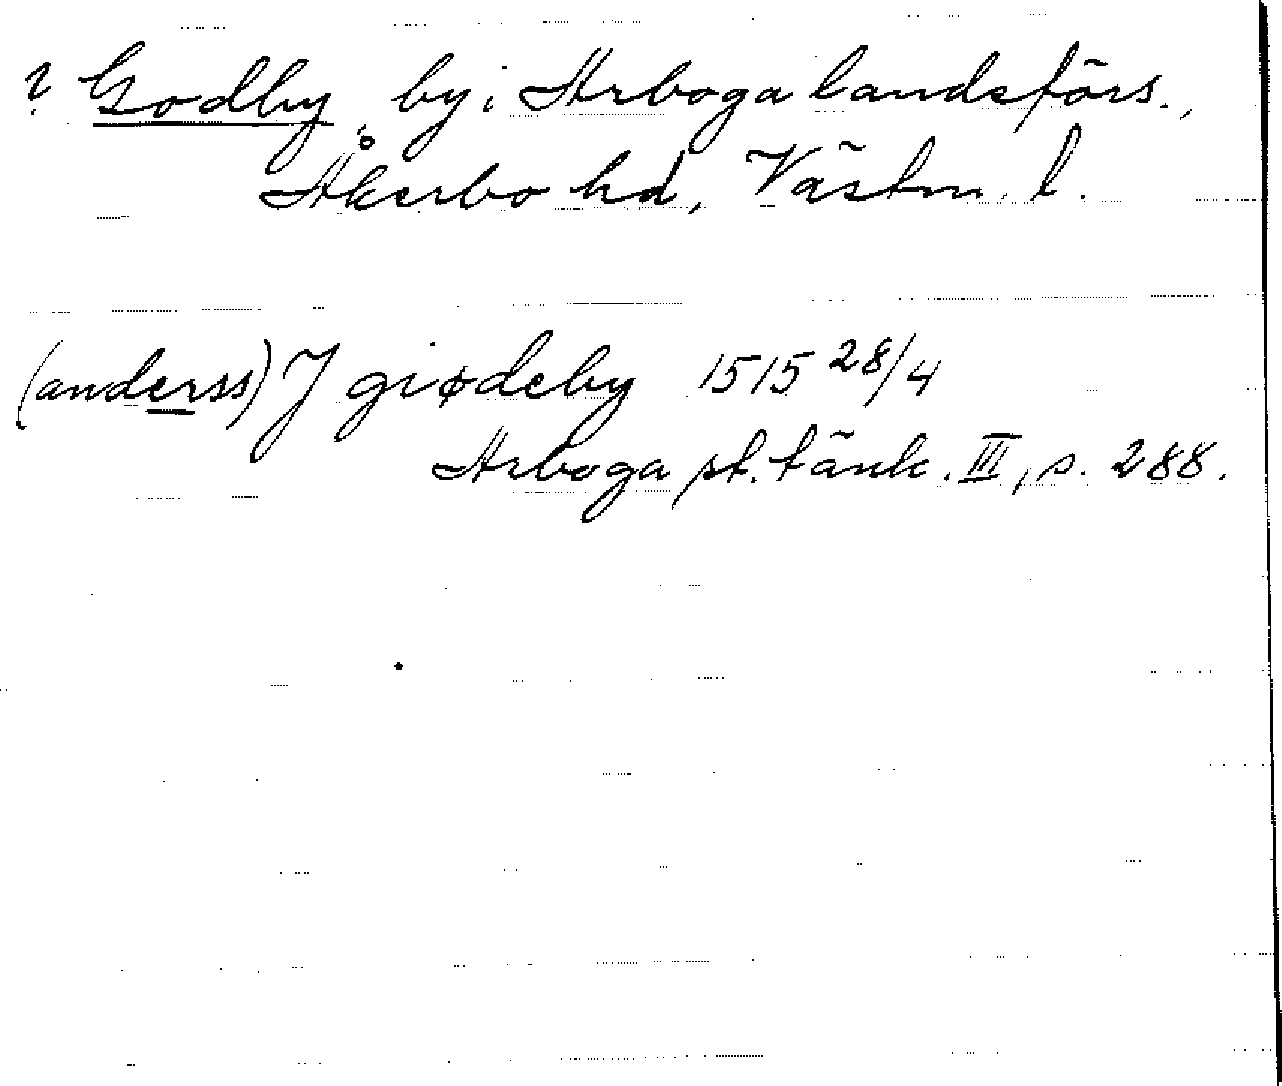 ? Godby, by i Arboga landsförs.,
Åkerbo hd, Västm. l.
(anderss) J giødeby 1515 28/4
Arboga st. tänk. III, s. 288.